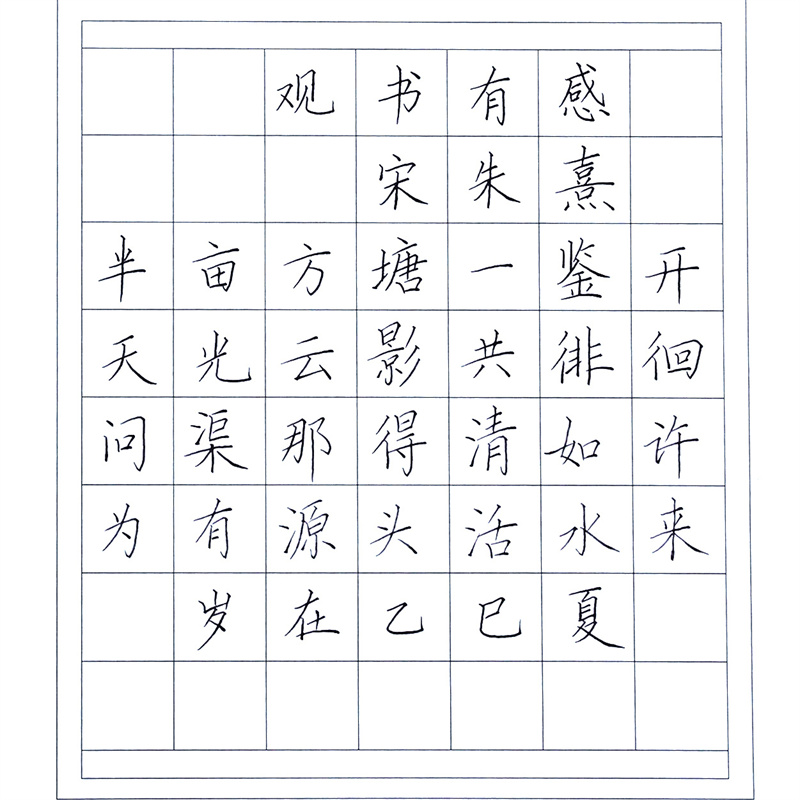 观书有感
宋朱熹
半亩方塘一鉴开
天光云影共徘徊
问渠那得清如许
为有源头活水来
岁在乙巳夏